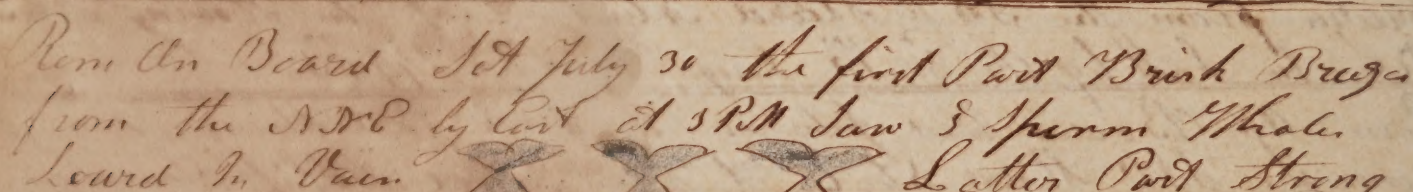 Rem On Board Sat July 30 the first Part Brisk Breeges
from the NNE by East at 3 PM Saw 3 Sperm Whales
Loard In Vain Latter Part Strong